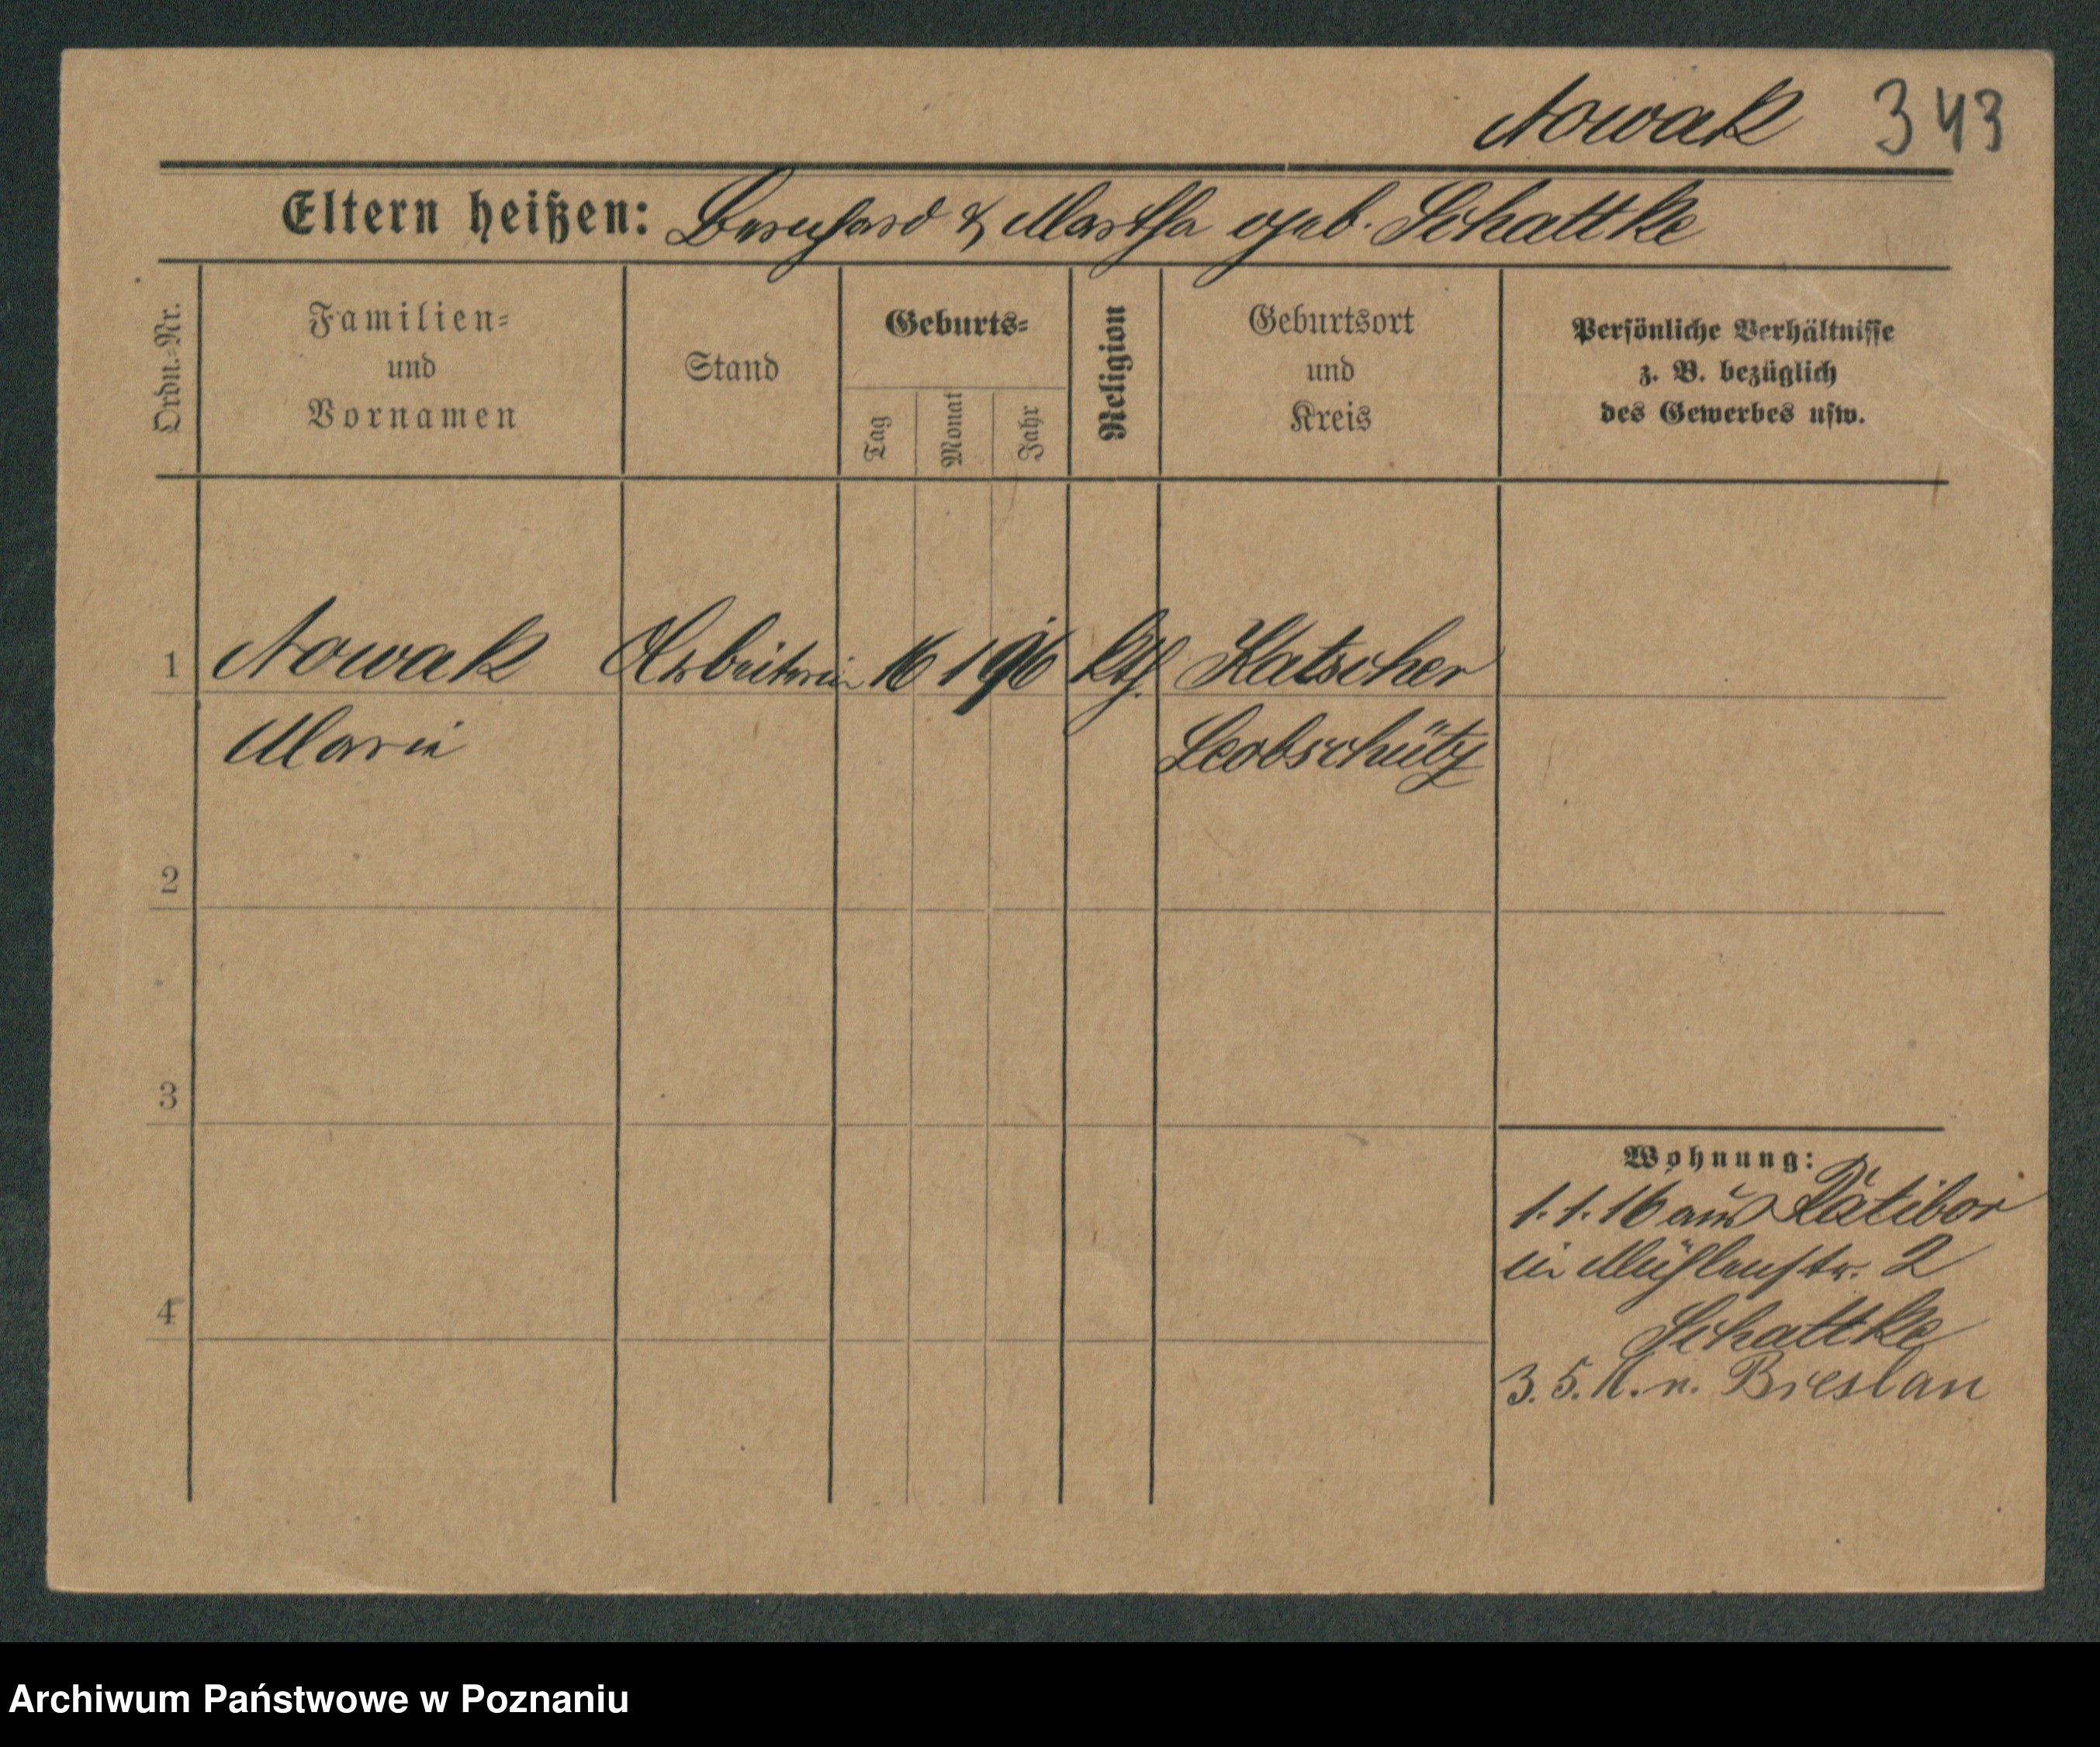 Nowak 343
Eltern heißen: Bernhard & Martha geb. Schattke
Ordn.-Nr.
Familien-
und
Vornamen
Stand
Geburts-
Tag
Monat
Jahr
Religion
Geburtsort
und
Kreis
Persönliche Verhältnisse
z. B. bezüglich
des Gewerbes usw.
1 Nowak Arbeiterin 16 1 96 kth. Katscher
Marie Leobschütz
2
3
4
Wohnung:
1.1.16 aus Ratibor
in Mühlenstr. 2
Schattke
3.5. n. Breslau
Archiwum Państwowe w Poznaniu